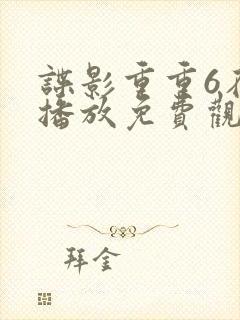 諜影重重6在
播放免費觀
拜金